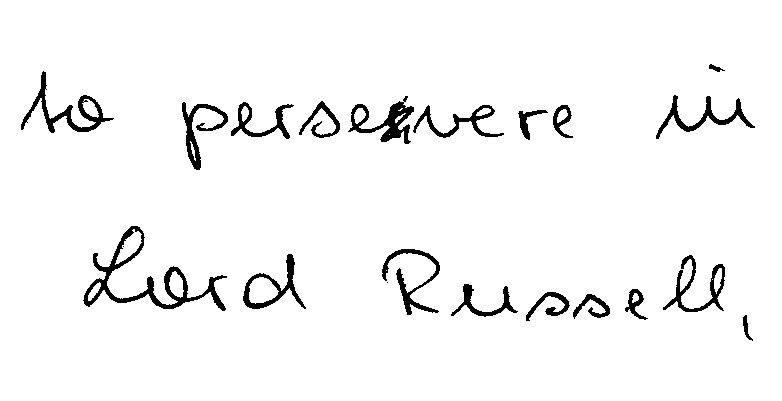 to persevere in
Lord Russell,